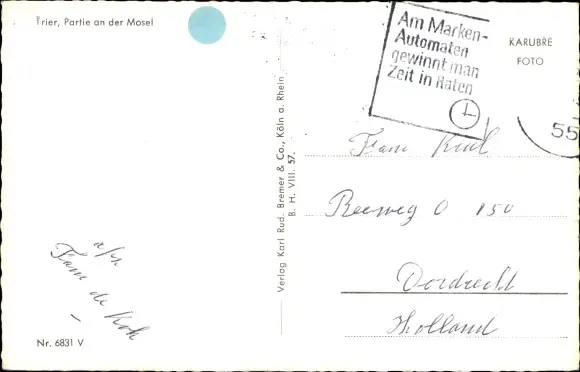 Trier, Partie an der Mosel
Am Marken-
Automaten
gewinnt man
Zeit in Raten
KARUBRE
FOTO
55
Verlag Karl Rud. Bremer & Co., Köln a. Rhein
B. H. VIII. 57.
Fam Krul
Reeweg O 150
Dordrecht
Holland
afz
Fam de Kok
Nr. 6831 V